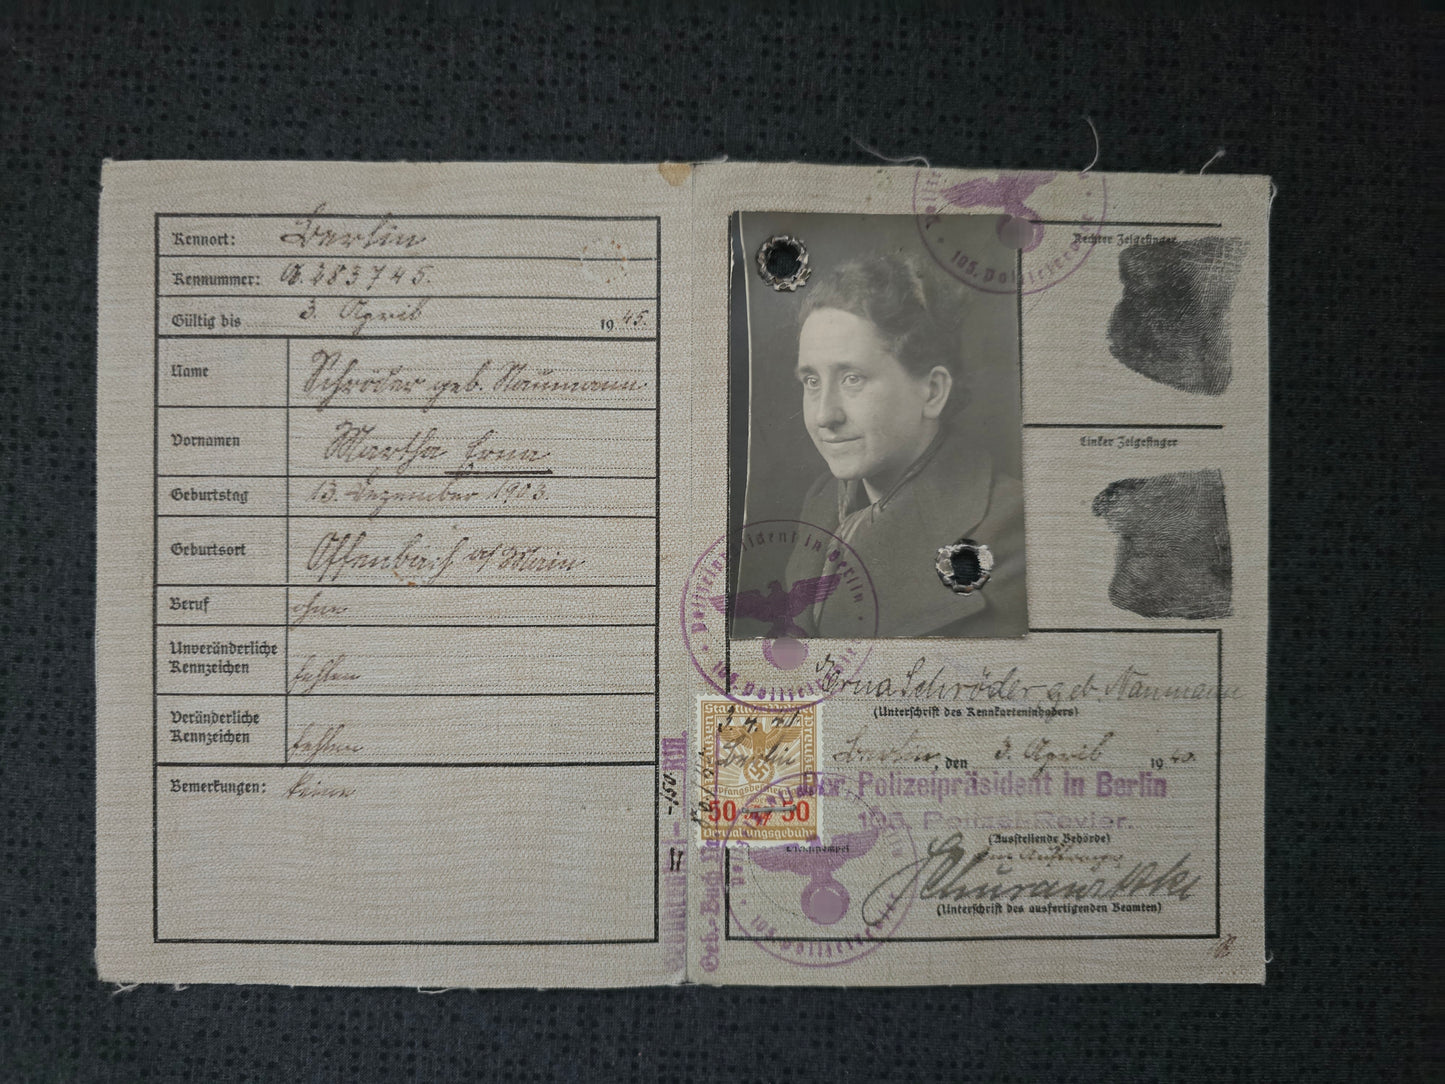 Kennort: Berlin
Kennummer: A. 283745.
Gültig bis 3. April 1945.
Name Schröder geb. Naumann
Vornamen Martha Erna
Geburtstag 13. Dezember 1903.
Geburtsort Offenbach a/ Main
Beruf ohne
Unveränderliche
Kennzeichen fehlen
Veränderliche
Kennzeichen fehlen
Bemerkungen: keine
Rechter Zeigefinger
105. Polizeirevier
Linker Zeigefinger
Polizeipräsident in Berlin
105. Polizeirevier
Erna Schröder geb. Naumann
(Unterschrift des Kennkarteninhabers)
3.4.40
Berlin
50 50
Verwaltungsgebühr
Berlin, den 3. April 1940.
Der Polizeipräsident in Berlin
105. Polizei-Revier.
(Ausstellende Behörde)
im Auftrage
(Unterschrift des ausfertigenden Beamten)
105. Polizeirevier
RM.
Geb.-Buch Nr.